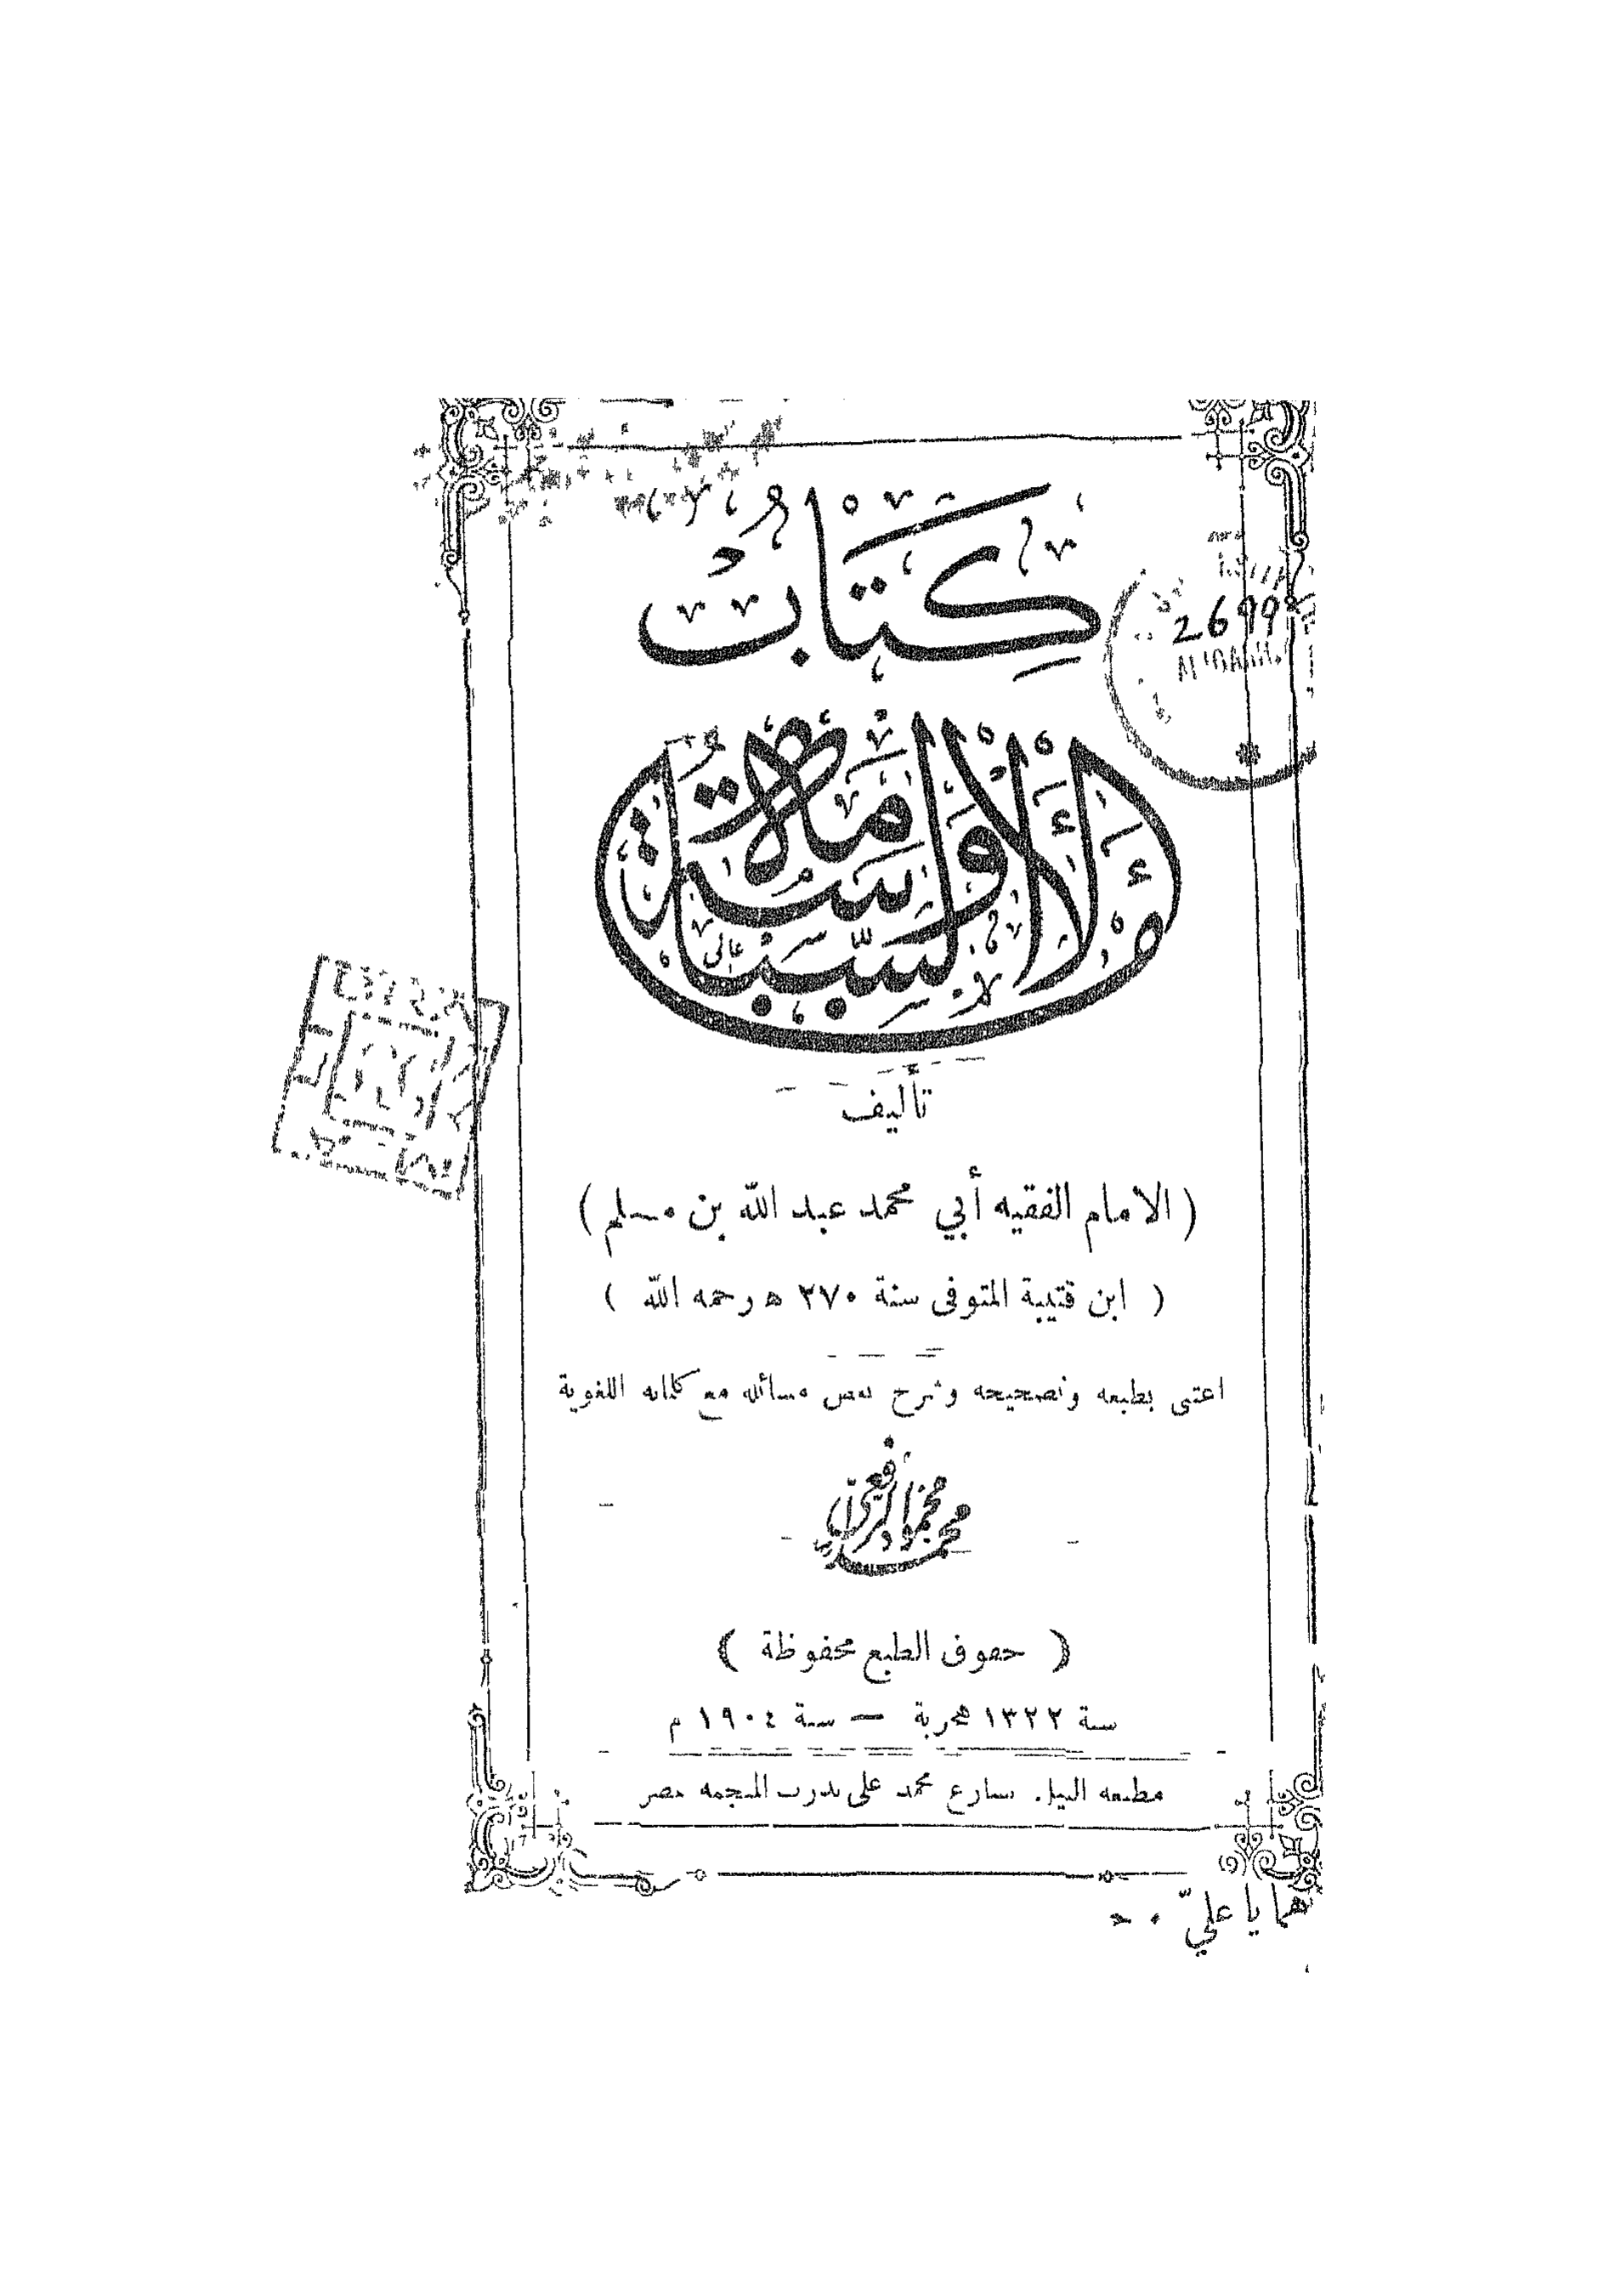 كتاب
الإمامة والسياسة
تأليف
( الامام الفقيه أبي محمد عبد الله بن مسلم )
( ابن قتيبة المتوفى سنة ٢٧٠ ه رحمه الله )
اعتنى بطبعه وتصحيحه وشرح بعض مسائله مع كلماته اللغوية
محمد محمود الرافعي
( حقوق الطبع محفوظة )
سنة ١٣٢٢ هجرية — سنة ١٩٠٤ م
مطبعه النيل شارع محمد على بدرب المنجمه بمصر
2699
يا علي